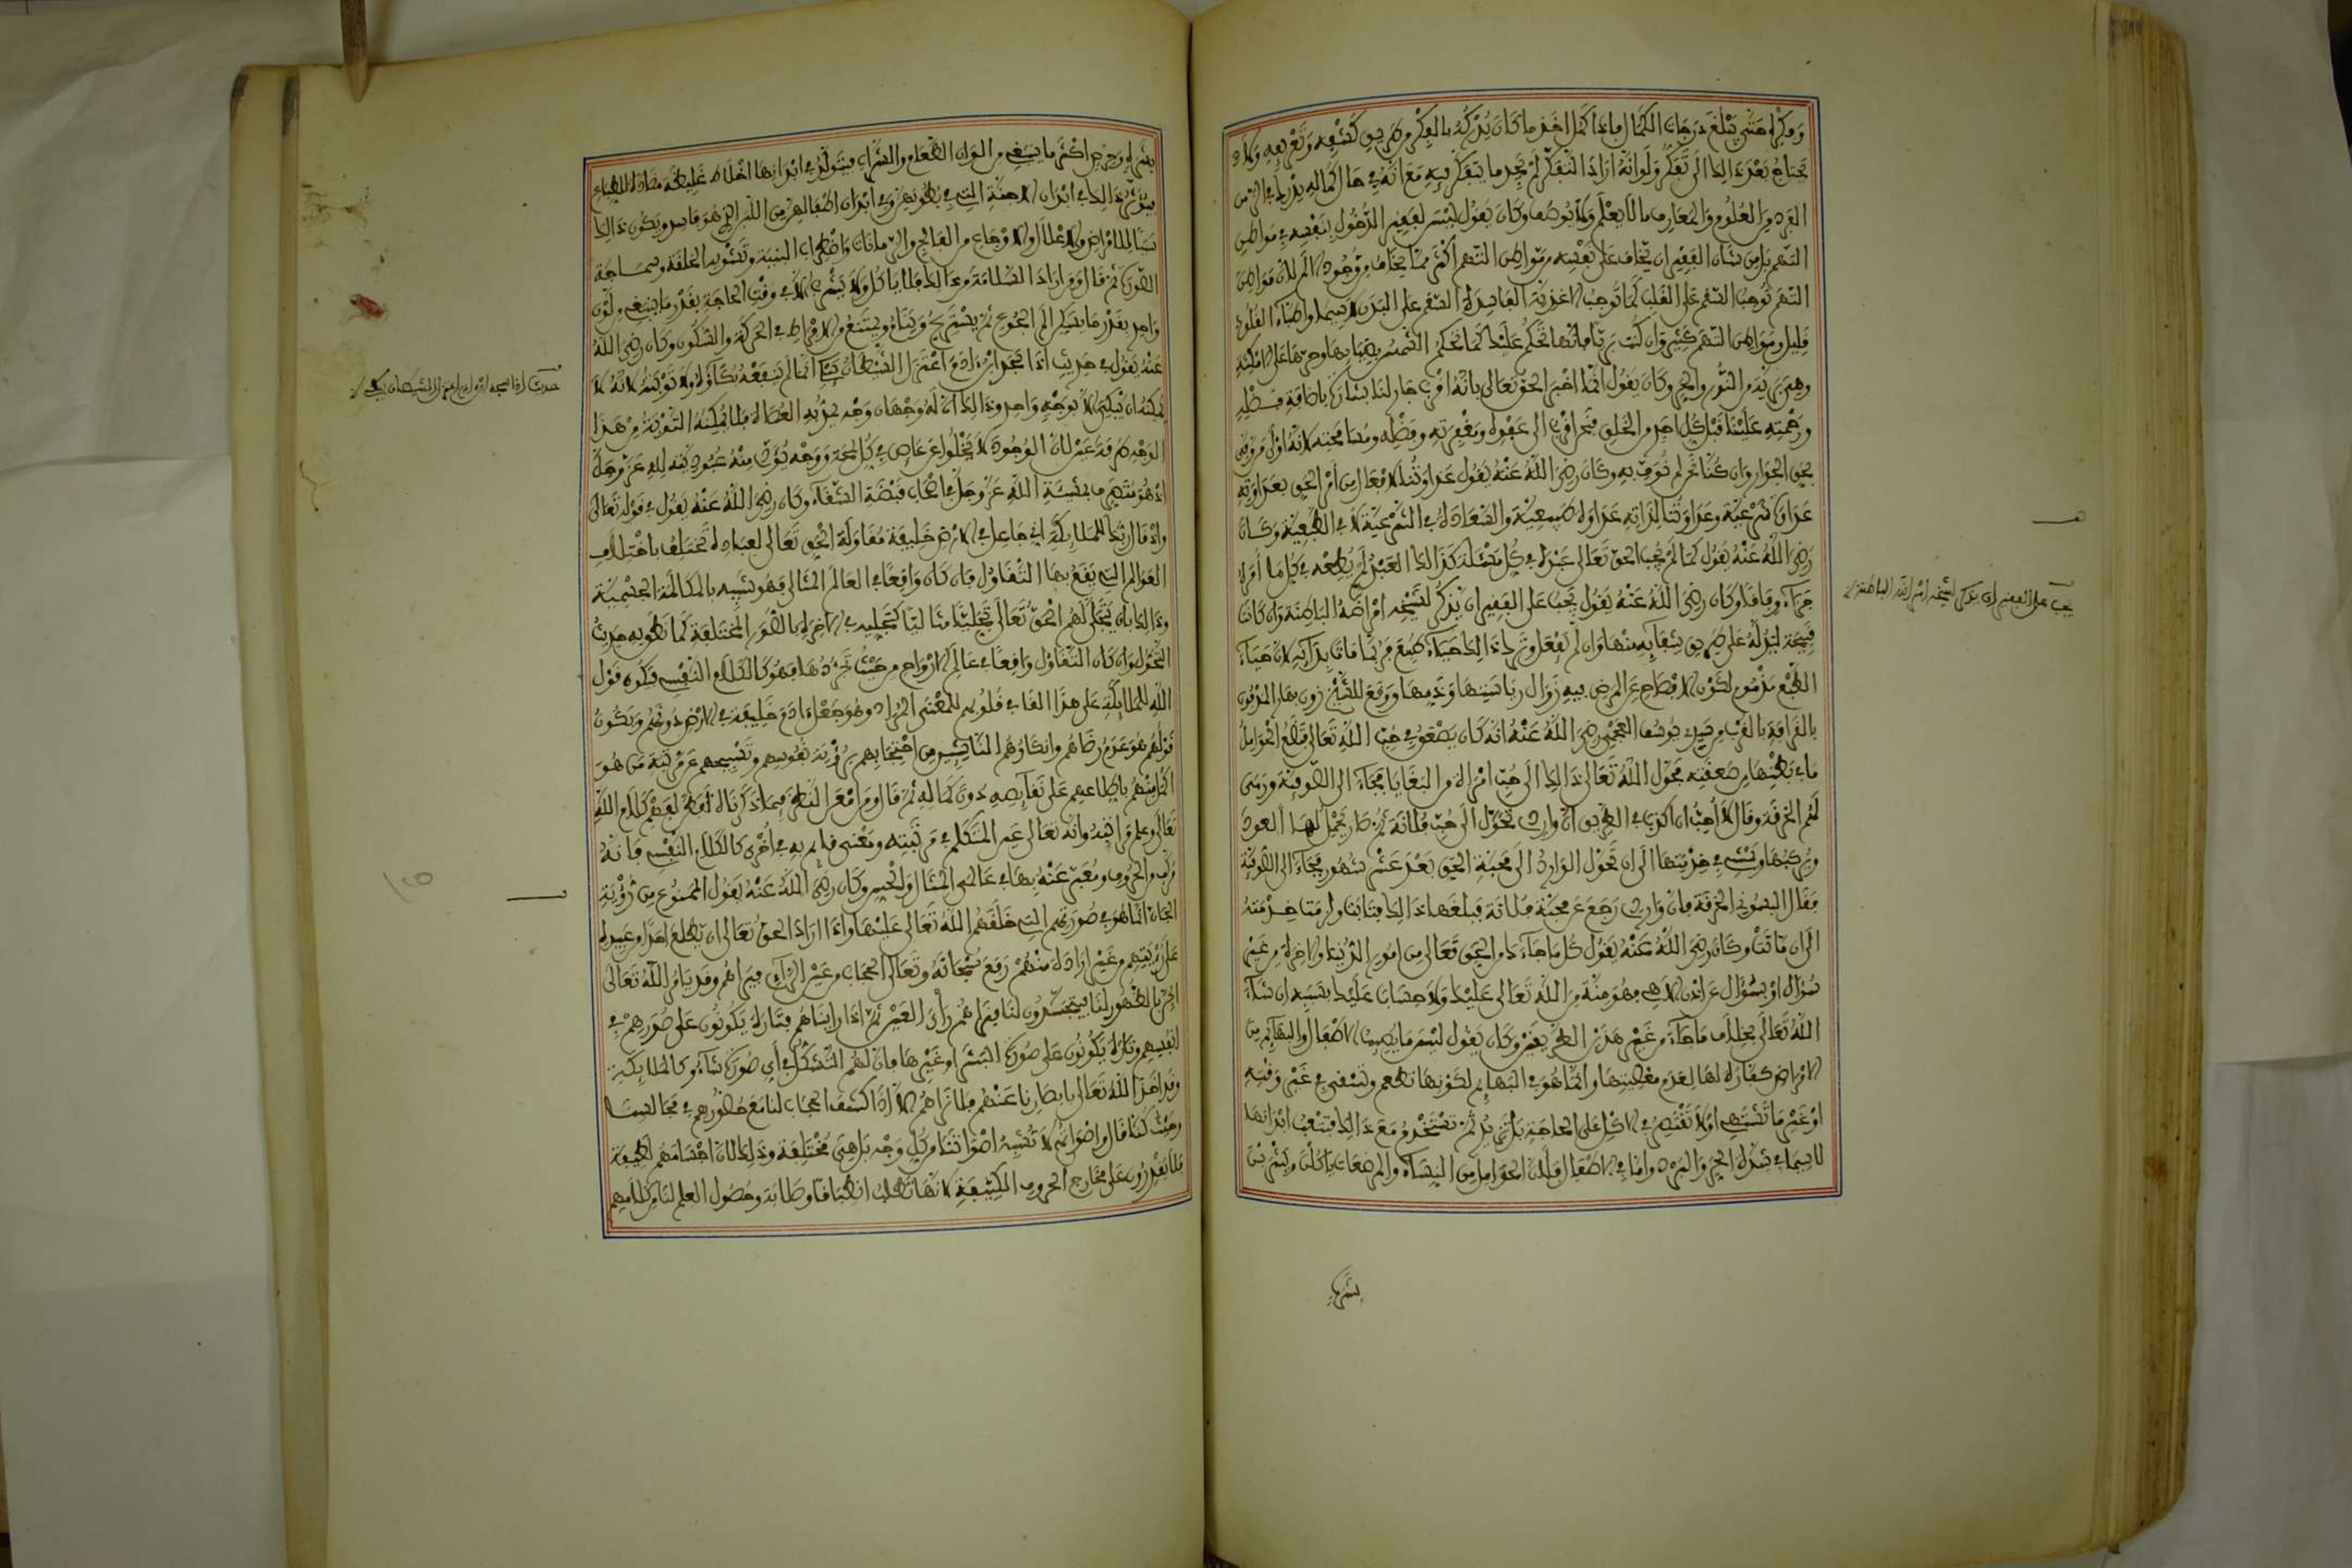 وفكره حتى يبلغ درجات الكمال فإذا كمل اخذ ما كان يدركه بالفكر من طريق كشفه وتعريفه ولا
يحتاج بعد ذالك الى تفكر ولو انه اراد التفكر لم يجد ما يتفكر فيه مع انه في حال كماله يدرك في الزمن
الفرد من العلوم والمعارف ما لا يعلم ولا يوصف وكان يقول ليس لفقير الدخول بنفسه في مواطن
التهم بل من شان الفقير ان يخاف على نفسه من مواطن التهم اكثر مما يخاف من وجود الم لان مواطن
التهم توجب السقم على القلب كما توجب الاغذية الفاسدة السقم على البدن لا سيما واطباء القلوب
قليل ومواطن التهم كثير وان كنت بريا فانها تحكم عليك كما تحكم الشمس بضيائها وحرها على الامكنة
وهي برية من النور والحر وكان يقول انما اخبر الحق تعالى بانه اقرب جار لنا بشارة بافاضة فضله
ورحمته علينا قبل كل احد من الخلق فنحن اقرب الى عفوه ومغفرته وفضله ومسامحته لانه اولى من وفى
بحق الجوار وان كنا نحن لم نوف به وكان رضي الله عنه يقول عداوتنا لافعال من امر الحق بعداوته
عداوة شرعية وعداوتنا لذاته عداوة طبيعية والسعادة في الشرعية لا في الطبيعية وكان
رضي الله عنه يقول كما لم يجب الحق تعالى عبده في كل مسئلة كذالك العبد لم يطعه في كل ما امره
جزاء وفاقا وكان رضي الله عنه يقول يجب على الفقير ان يذكر لشيخه امراضه الباطنة وان كانت
قبيحة ليدله على طريق شفائه منها وان لم يفعل وترك ذالك حياء طبع فربما مات بدائه لان حياء
الطبع مذموم لكون الافصاح عن المرض فيه زوال رياستها وتدمها ووقع للشيخ المدفون
بالقرافة بالقرب من يوسف العجمي رضي الله عنه انه كان يصعق في حب الله تعالى فتضع الحوامل
ما في بطنها من صعقته فحول الله تعالى ذالك الى حب امراة من البغايا فجاء الى الصوفية ورمى
لهم الخرقة وقال لا احب ان اكذب في الطريق ان واردي تحول الى حب فلانة ثم صار يحمل لها العود
ويركبها ويمشي في خدمتها الى ان تحول الوارد الى محبة الحق بعد عشر شهور فجاء الى الصوفية
فقال البسوني الخرقة فان واردي رجع عن محبة فلانة فبلغها ذالك فتابت ولزمت خدمته
الى ان ماتت وكان رضي الله عنه يقول كل ما جاءك من الحق تعالى من امور الدنيا والاخرة من غير
سؤال او بسؤال عن اذن الاهي فهو منة من الله تعالى عليك ولا حساب عليك بسببه ان شاء
الله تعالى بخلاف ما جاء من غير هذين الطريقين وكان يقول ليس ما يصيب الاطفال والبهائم من
الامراض كفارة لها لعدم معصيتها وانما هو في البهائم لكونها تطعم وتسقى في غير وقته
او غير ما تشتهي اولا تقتصر في الاكل على الحاجة بل تزيد ثم تستخدم مع ذالك فتتعب ابدانها
لاسيما في شدة الحر والبرد واما في الاطفال فلان الحوامل من النساء والمرضعات ياكلن ويشربن
بشره
يجب على الفقير ان يذكر لشيخه امراضه الباطنة
بشره وحرص اكثر ما ينبغي من الوان الطعام والشراب فيتولد في ابدانها اخلاط غليظة مضادة للطباع
فيؤثر ذالك في ابدان الاجنة التي في بطونهن وفي ابدان اطفالهن من اللبن الذي هو فاسد ويكون ذالك
سببا للامراض والاعلال والاوجاع من الفالج والزمانات واضطراب البنية وتشويه الخلقة وسماجة
الصورة ثم قال ومن اراد السلامة من ذالك فلا ياكل ولا يشرب الا في وقت الحاجة بقدر ما ينبغي من لون
واحد بقدر ما يسكن الم الجوع ثم يستريح وينام ويمتنع من الافراط في الحركة والسكون وكان رضي الله
عنه يقول في حديث اذا سجد ابن ادم اعتزل الشيطان يبكي انما لم ينفعه بكاؤه ولا توبته لانه لا
يمكنه ان يبكي الا بوجه واحد وذالك ان له وجهان وجه يمد به العصاة فلا يمكنه التوبة من هذا
الوجه طرفة عين لان الوجود لا يخلوا عن عاص في كل لمحة ووجه يؤدي منه عبوديته لله عز وجل
اذ هو متصرف بمشيئة الله عز وجل في اصحاب قبضة الشقاء وكان رضي الله عنه يقول في قوله تعالى
واذ قال ربك للملائكة اني جاعل في الارض خليفة مقاولة الحق تعالى لعباده تختلف باختلاف
العوالم التي يقع بها التقاول فان كان واقعا في العالم المثالي فهو شبيه بالمكالمة الجسمية
وذالك بان يتجلى لهم الحق تعالى تجليا مثاليا كتجليه في الاخرة بالصور المختلفة كما نطق به حديث
التحول وان كان التقاول واقعا في عالم الارواح من حيث تجردها فهو كالكلام النفسي فيكون قول
الله للملائكة على هذا القاء في قلوبهم للمعنى المراد وهو جعله ادم خليفة في الارض دونهم ويكون
قولهم هو عدم رضاهم وانكارهم الناشئين من احتجابهم برؤية نفوسهم وتسبيحهم عن مرتبة من هو
اكمل منهم باطلاعهم على نقائصه دون كماله ثم قال ومن امعن النظر فيما ذكرناه فطن لفهم كلام الله
تعالى وعلم مراتبه وانه تعالى عين المتكلم في مرتبته ومعنى قائم به في اخرى كالكلام النفسي فانه
مركب من الحروف ومعبر عنه بها في عالمي المثال والحس وكان رضي الله عنه يقول الممنوع من رؤية
الجان انما هو في صورتهم التي خلقهم الله تعالى عليها واذا اراد الحق تعالى ان يطلع احدا من عبيده
على رؤيتهم من غير ارادة منهم رفع سبحانه وتعالى الحجاب من عين الرائي فيراهم وقد يامر الله تعالى
الجن بالظهور لنا فيتجسدون لنا فنراهم راي العين ثم اذا رايناهم فتارة يكونون على صورهم في
انفسهم وتارة يكونون على صورة البشر او غيرها فان لهم التشكل في اي صورة شاؤا كالملائكة
وقد اخذ الله تعالى بابصارنا عنهم فلا نراهم الا اذا كشف الحجاب لنا مع حضورهم في مجالسنا
وحيث كنا قال واصواتهم لا تشبه اصواتنا من كل وجه بل هي مختلفة وذالك لان اجسامهم لطيفة
فلا يقدرون على مخارج الحروف الكثيفة لانها تطلب انطباقا وصلابة وحصول العلم لنا من كلامهم
حديث اذا سجد ابن ادم اعتزل الشيطان يبكي